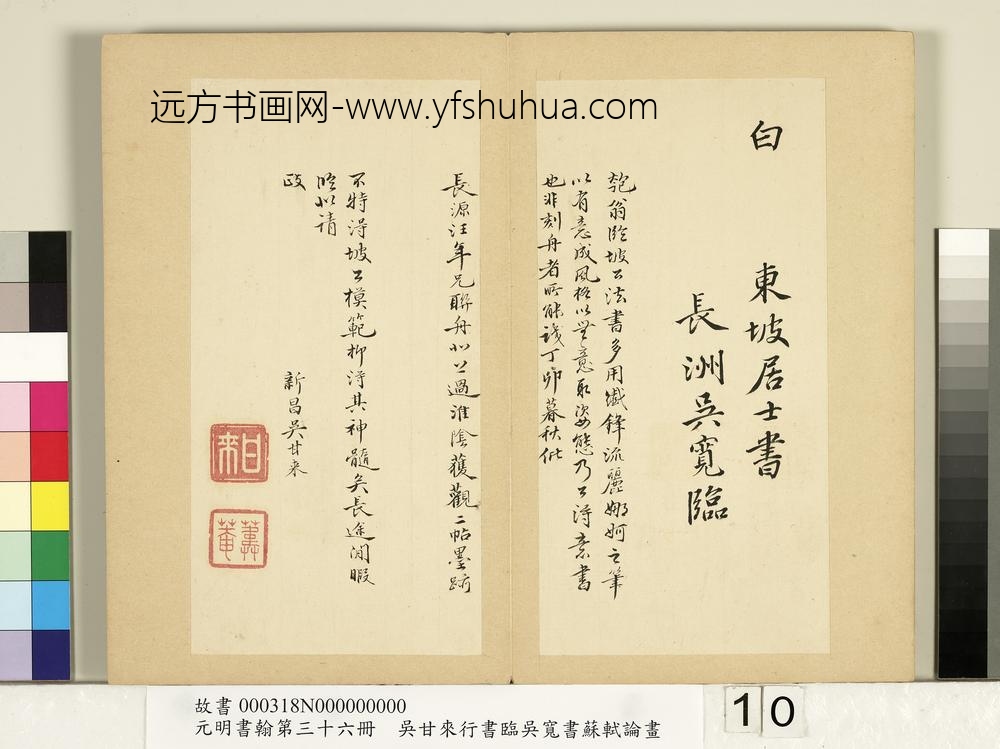 远方书画网-www.yfshuhua.com
白
東坡居士書
長洲吳寬臨
匏翁臨坡公法書多用纖鋒流麗娜婀之筆
以有意成風格以無意取姿態乃公得意書
也非刻舟者所能識丁卯暮秋似
長源汪年兄聯舟北上過淮陰獲觀二帖墨跡
不特得坡公模範抑得其神髓矣長途閒暇
臨以請
政
新昌吳甘来
甘来
故書 000318N000000000
元明書翰第三十六冊 吳甘來行書臨吳寬書蘇軾論畫
10